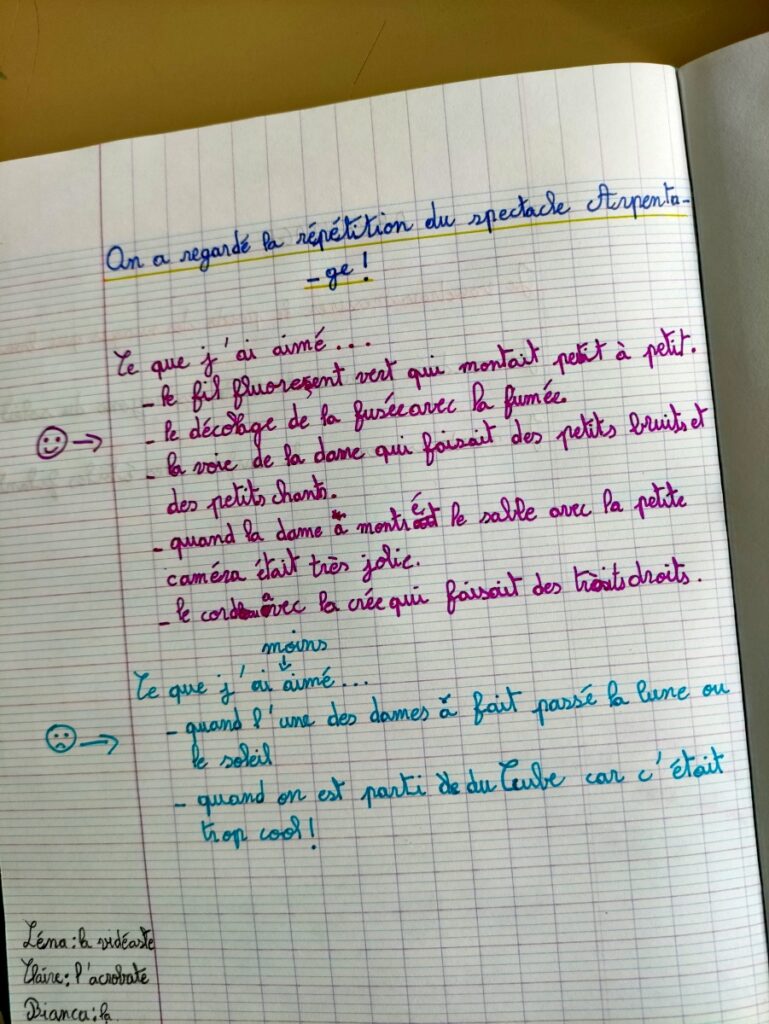 On a regardé la répétition du spectacle Arpenta-
-ge !
Ce que j'ai aimé...
- le fil fluoresçent vert qui montait petit à petit.
- le décolage de la fusée avec la fumée.
- la voie de la dame qui faisait des petits bruits et
des petits chants.
- quand la dame a montré le sable avec la petite
caméra était très jolie.
- le cordeau avec la crée qui faisait des traits droits.
moins
Ce que j'ai aimé...
- quand l'une des dames à fait passé la lune ou
le soleil
- quand on est parti du Cube car c'était
trop cool !
Léna : la vidéaste
Claire : l'acrobate
Bianca : la